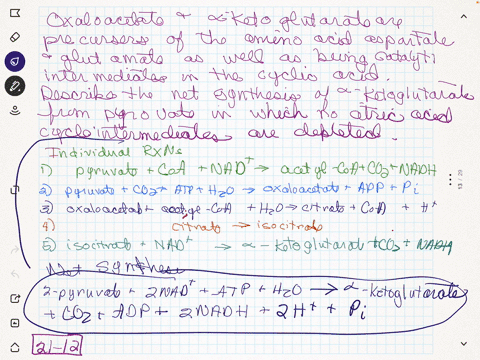 Oxaloacetate & α-Keto glutarate are
precursers of the amino acid aspartate
& glutamate as well as being catalyti
intermediates in the cyclic acid.
Describe the net synthesis of α-Ketoglutarate
from pyruvate in which no citric acid
cycle intermediates are depleted.
Individual RXNs
1) pyruvate + CoA + NAD+ → acetyl-CoA + CO2 + NADH
2) pyruvate + CO2 + ATP + H2O → oxaloacetate + ADP + Pi
3) oxaloacetate + acetyl-CoA + H2O → citrate + CoA + H+
4) citrate → isocitrate
5) isocitrate + NAD+ → α-Ketoglutarate + CO2 + NADH
Net Synthesis
2-pyruvate + 2NAD+ + ATP + H2O → α-ketoglutarate
+ CO2 + ADP + 2NADH + 2H+ + Pi
21-12